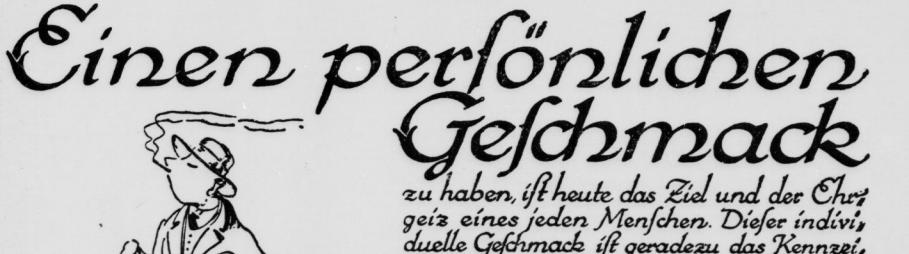 Einen perſönlichen
Geſchmack
zu haben, iſt heute das Ziel und der Ehr⸗
geiz eines jeden Menſchen. Dieſer indivi⸗
duelle Geſchmack iſt geradezu das Kennzei⸗